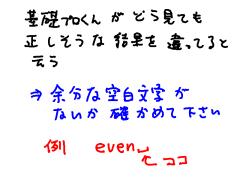 基礎プロくんがどう見ても
正しそうな結果を違ってると
云う
⇒ 余分な空白文字が
ないか確かめて下さい
例 even␣
ココ